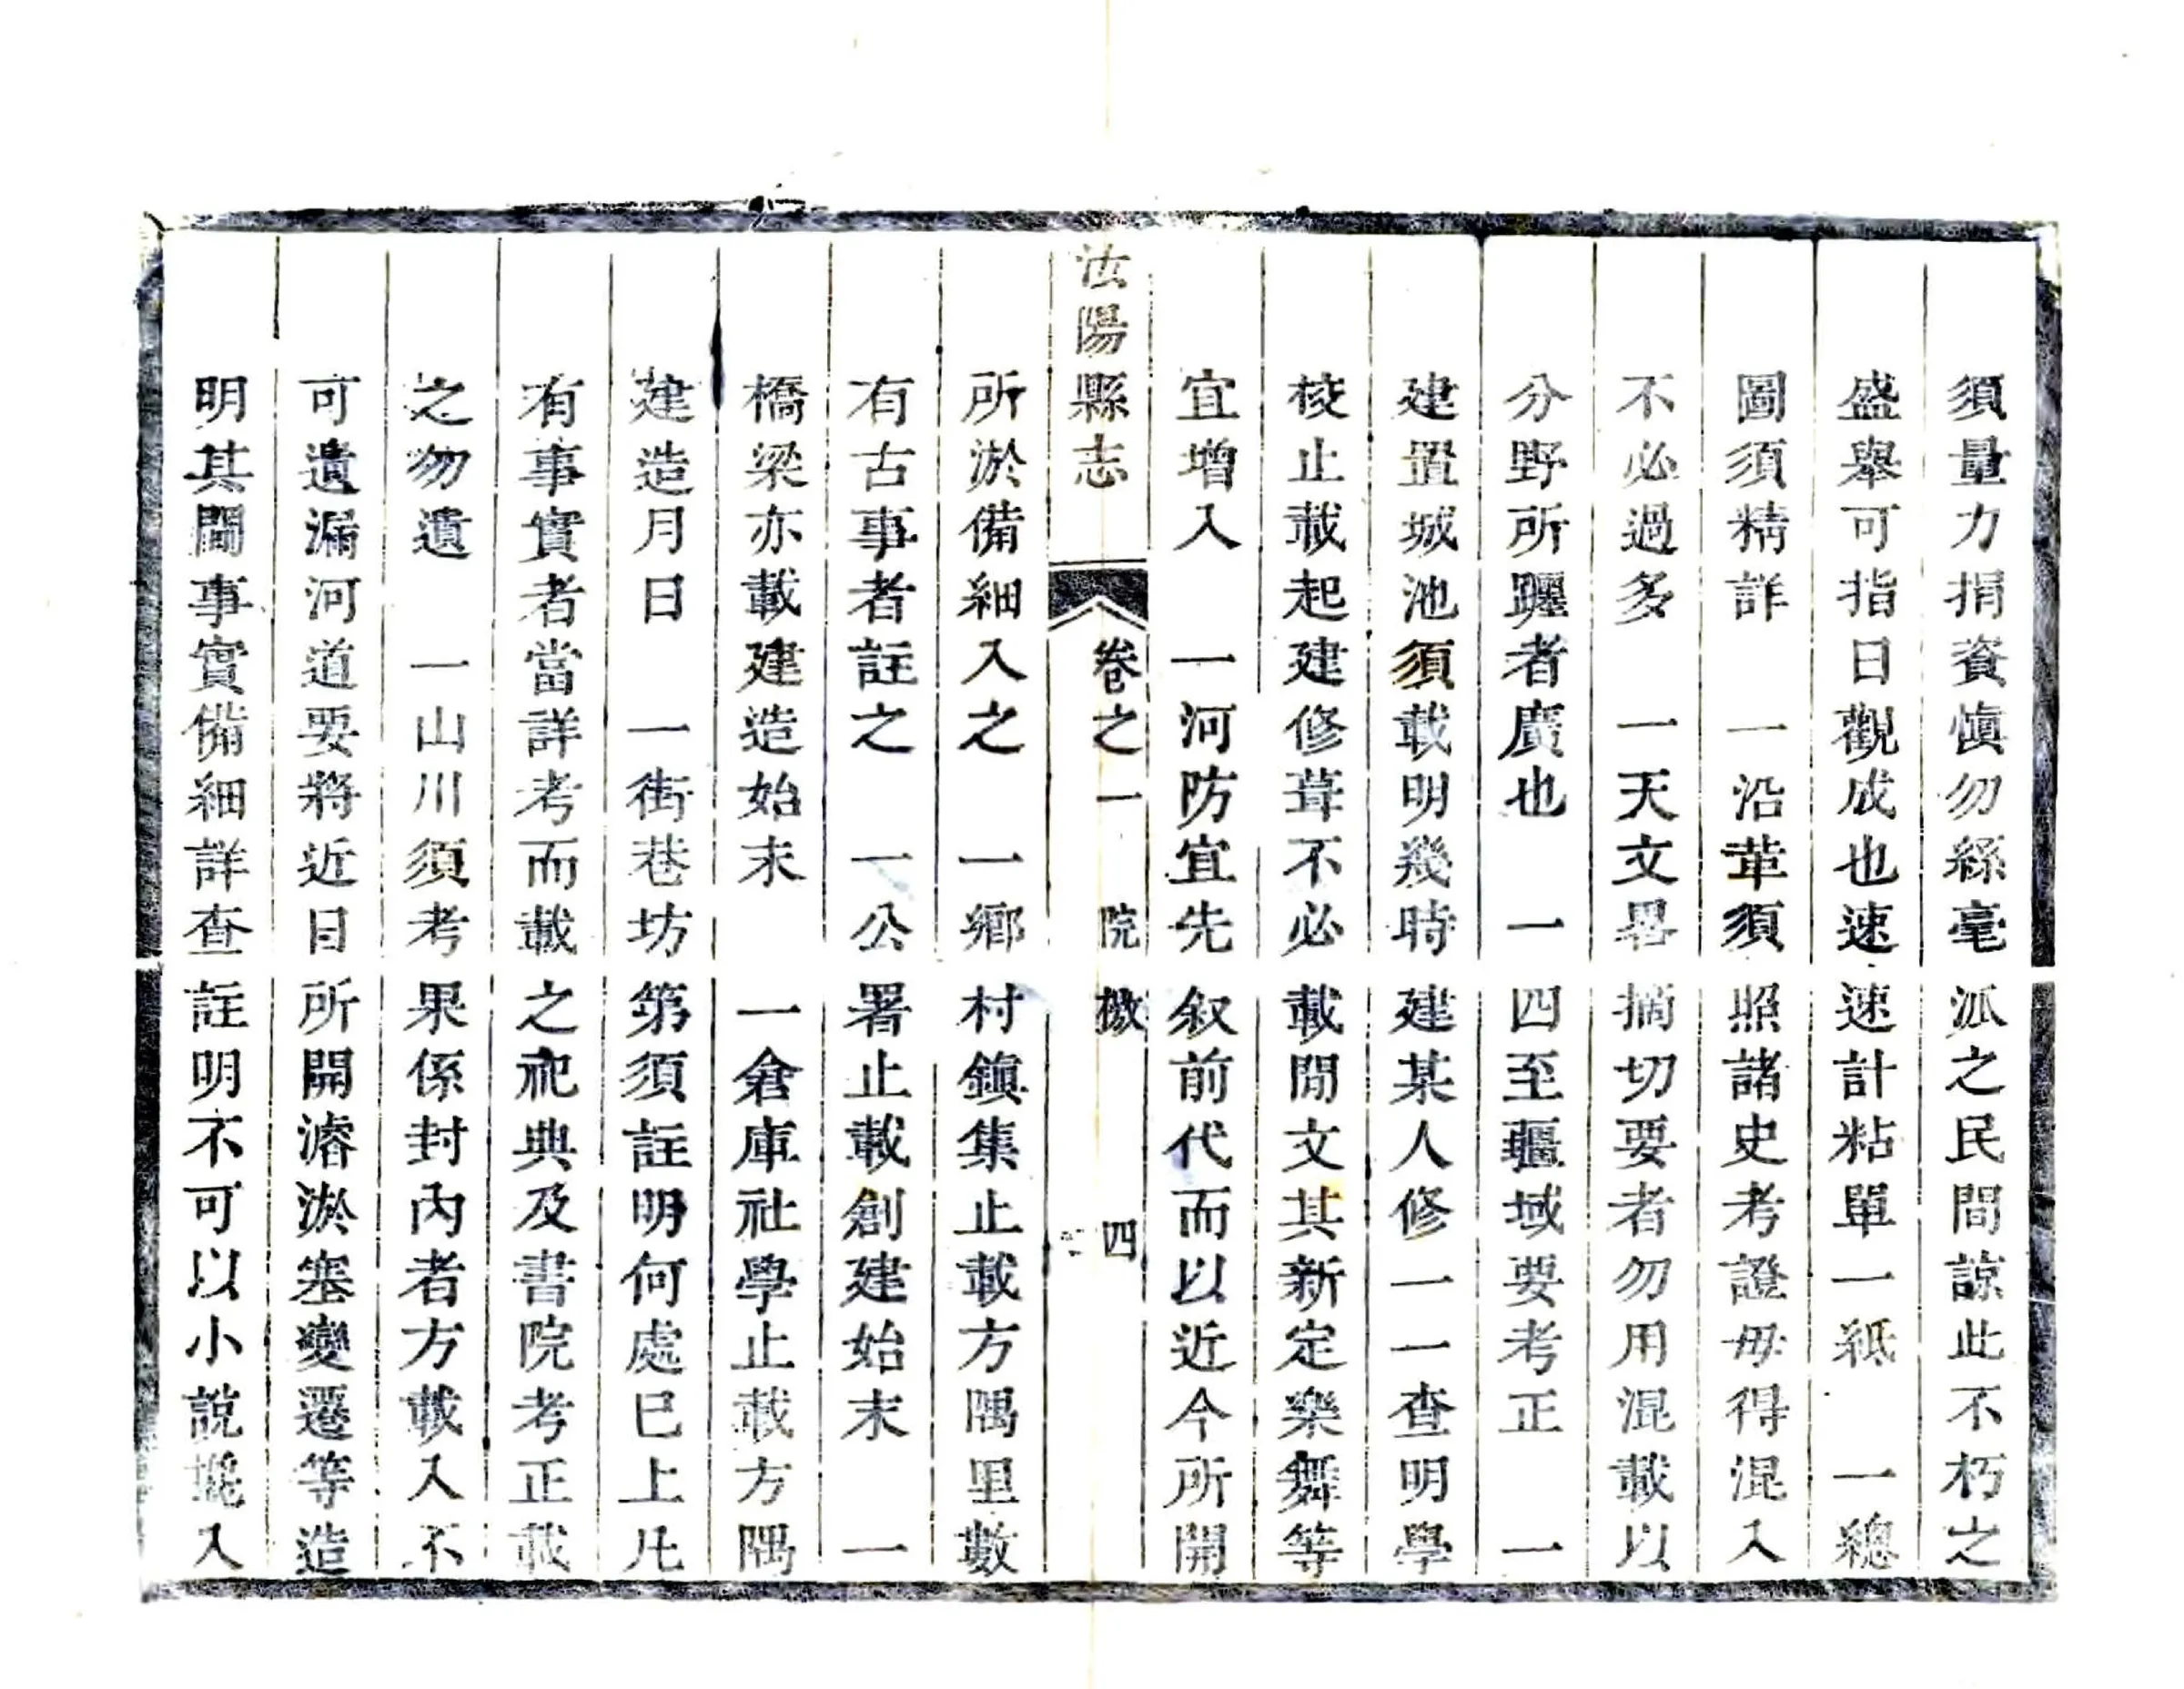 須量力捐資愼勿絲毫派之民間諒此不朽之
盛舉可指日觀成也速速計粘單一紙　一總
圖須精詳　一沿革須照諸史考證毋得混入
不必過多　一天文畧摘切要者勿用混載以
分野所躔者廣也　一四至疆域要考正　一
建置城池須載明幾時建某人修一一查明學
校止載起建修葺不必載閒文其新定樂舞等
宜增入　一河防宜先叙前代而以近今所開
汝陽縣志　卷之一　院檄　四
所淤備細入之　一鄉村鎭集止載方隅里數
有古事者註之　一公署止載創建始末　一
橋梁亦載建造始末　一倉庫社學止載方隅
建造月日　一街巷坊第須註明何處已上凡
有事實者當詳考而載之祀典及書院考正載
之勿遺　一山川須考果係封內者方載入不
可遺漏河道要將近日所開濬淤塞變遷等造
明其間事實備細詳查註明不可以小說混入